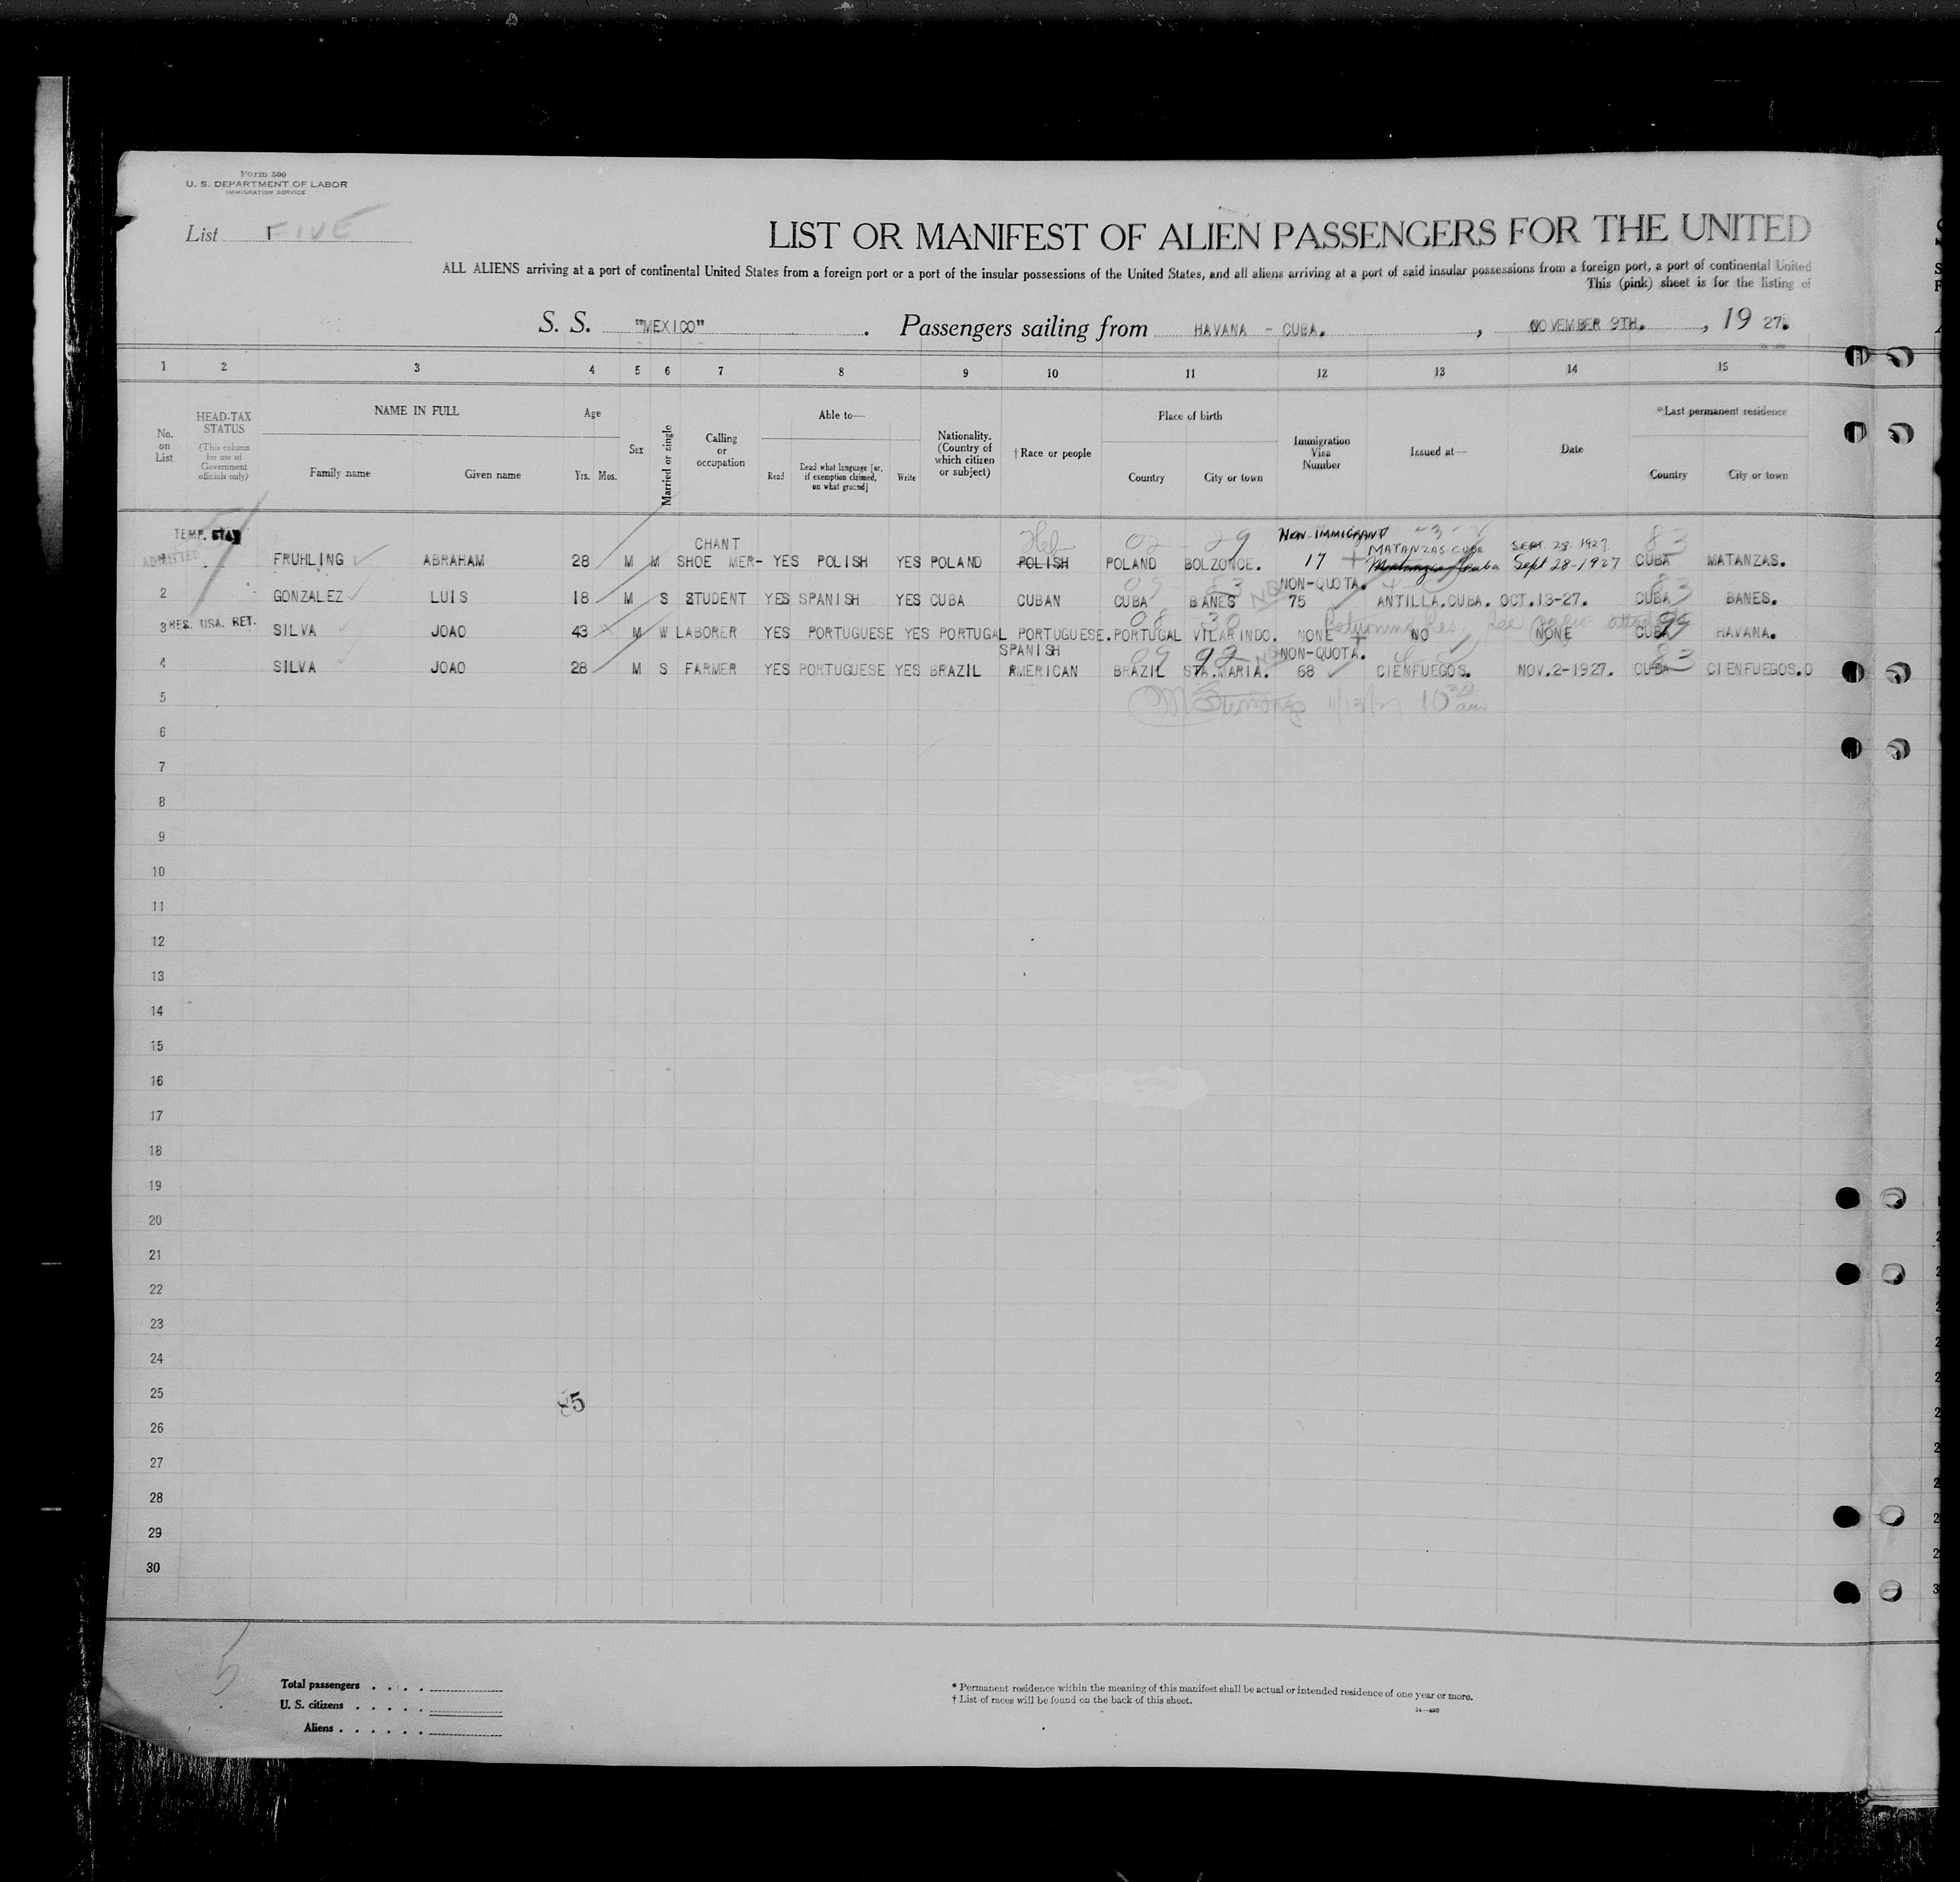 Form 500
U. S. DEPARTMENT OF LABOR
IMMIGRATION SERVICE
List FIVE
LIST OR MANIFEST OF ALIEN PASSENGERS FOR THE UNITED
ALL ALIENS arriving at a port of continental United States from a foreign port or a port of the insular possessions of the United States, and all aliens arriving at a port of said insular possessions from a foreign port, a port of continental United
This (pink) sheet is for the listing of
S. S. "MEXICO" . Passengers sailing from HAVANA - CUBA. , NOVEMBER 9TH. , 19 27.
1 2 3 4 5 6 7 8 9 10 11 12 13 14 15
No. on List
HEAD-TAX STATUS
(This column for use of Government officials only)
NAME IN FULL
Family name Given name
Age
Yrs. Mos.
Sex
Married or single
Calling or occupation
Able to—
Read
Read what language [or, if exemption claimed, on what ground]
Write
Nationality. (Country of which citizen or subject)
†Race or people
Place of birth
Country City or town
Immigration Visa Number
Issued at—
Date
*Last permanent residence
Country City or town
TEMP. STAY 5 CHANT Heb 02 29 NON-IMMIGRANT MATANZAS CUBA SEPT. 28. 1927 83
1 ADMITTED FRUHLING ABRAHAM 28 M M SHOE MER- YES POLISH YES POLAND POLISH POLAND BOLZONCE. 17 Matanzas Cuba Sept 28-1927 CUBA MATANZAS.
09 83 NON-QUOTA. 83
2 GONZALEZ LUIS 18 M S STUDENT YES SPANISH YES CUBA CUBAN CUBA BANES NQ 75 ANTILLA.CUBA. OCT.13-27. CUBA BANES.
08 30 Returning Res. See attached 99
3 RES. USA. RET. SILVA JOAO 43 M W LABORER YES PORTUGUESE YES PORTUGAL PORTUGUESE. PORTUGAL VILARINDO. NONE NO NONE CUBA HAVANA.
SPANISH 09 92 NON-QUOTA. 83
4 SILVA JOAO 28 M S FARMER YES PORTUGUESE YES BRAZIL AMERICAN BRAZIL STA.MARIA. 68 CIENFUEGOS. NOV.2-1927. CUBA CIENFUEGOS.
5 11/13/27 10 30 am
6
7
8
9
10
11
12
13
14
15
16
17
18
19
20
21
22
23
24
25
85
26
27
28
29
30
5
Total passengers . . . .
U. S. citizens . . . . .
Aliens . . . . . .
* Permanent residence within the meaning of this manifest shall be actual or intended residence of one year or more.
† List of races will be found on the back of this sheet.